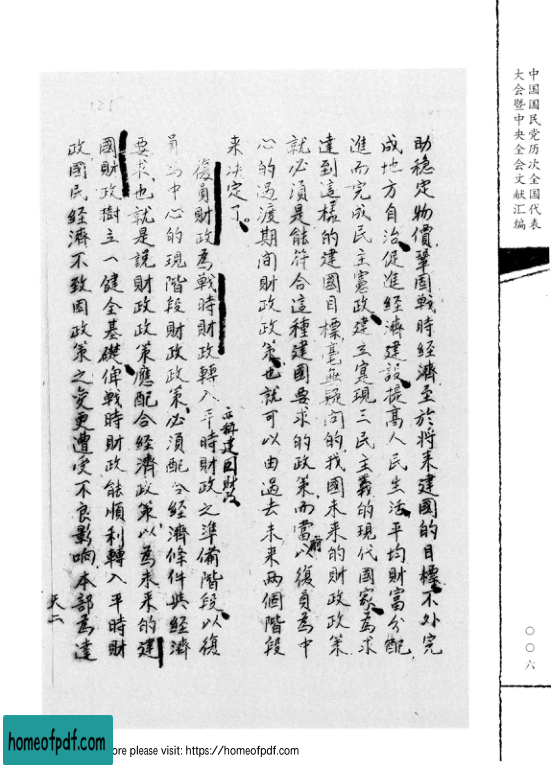 中国国民党历次全国代表
大会暨中央全会文献汇编
〇〇六
助稳定物價鞏固戰時經濟至於將来建國的目標不外完
成地方自治促進經濟建設提高人民生活平均財富分配
進而完成民主憲政建立實現三民主義的現代國家為求
達到這樣的建國目標毫無疑问的我國未来的財政政策
就必須是能符合這種建國要求的政策而當前以復員為中
心的過渡期间財政政策也就可以由過去未来两個階段
来决定了。
復員財政為戰時財政轉入平時財政之準備階段以復
亦称建囯財政
員為中心的現階段財政政策必須配合經濟條件與經濟
要求也就是説財政政策應配合經濟政策以為未来的建
國財政樹立一健全基礎俾戰時財政能順利轉入平時財
政國民經濟不致因政策之变更遭受不良影响本部為達
homeofpdf.com
ore please visit: https://homeofpdf.com